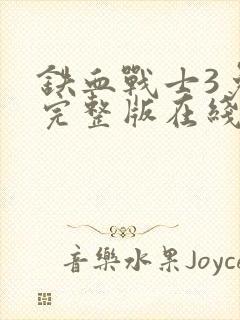 鉄血戰士3
完整版在綫
音樂水果Joyce